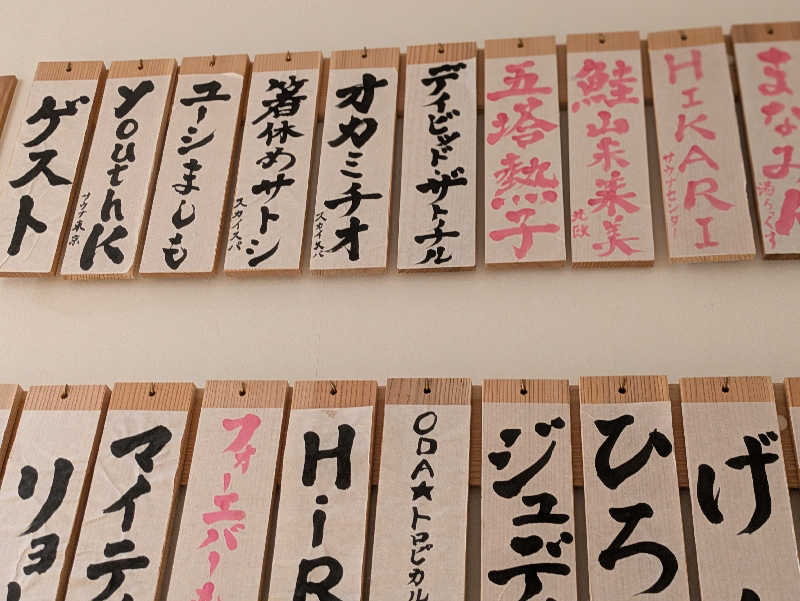 ゲスト
youthK
サウナ東京
ユーシましも
箸休めサトシ
スカイスパ
オカミチオ
スカイスパ
デイビッド・ザ・トナル
五塔熱子
鮭山未菜美
北欧
HIKARI
サウナセンター
まなみ
湯らっくす
リョ
マイテ
フォーエバー
HiR
ODA★トロピカル
ジュディ
ひろ
げ